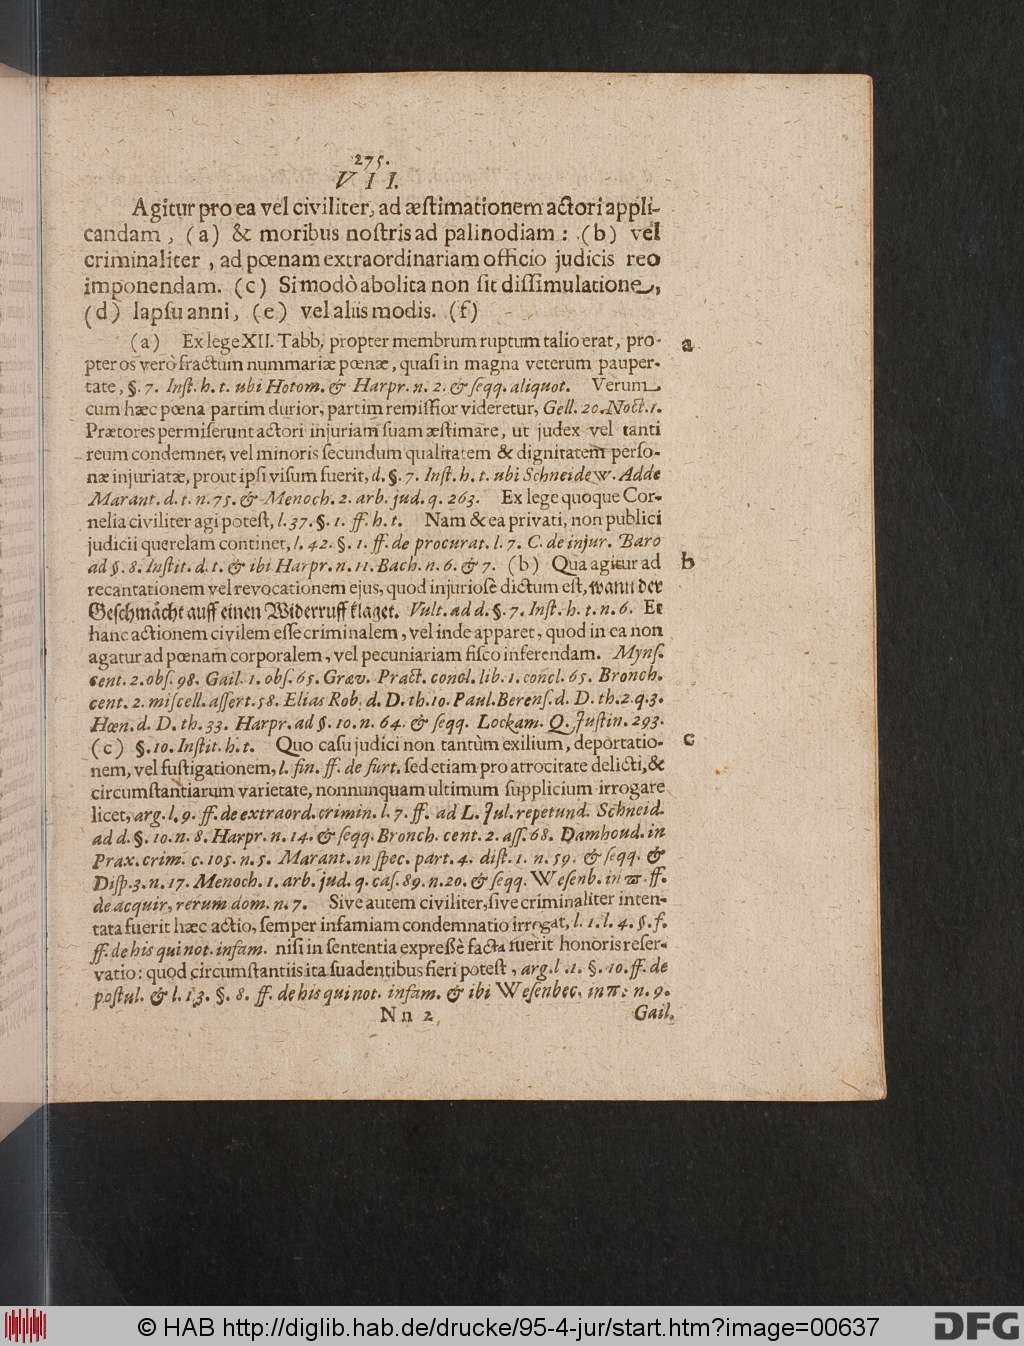 275.
VII.
Agitur pro ea vel civiliter, ad æstimationem actori appli-
candam, (a) & moribus nostris ad palinodiam: (b) vel
criminaliter, ad pœnam extraordinariam officio judicis reo
imponendam. (c) Si modò abolita non sit dissimulatione,
(d) lapsu anni, (e) vel aliis modis. (f)
(a) Ex lege XII. Tabb, propter membrum ruptum talio erat, pro-
pter os verò fractum nummariæ pœnæ, quasi in magna veterum pauper-
tate, §. 7. Inst. h. t. ubi Hotom. & Harpr. n. 2. & seqq. aliquot. Verum
cum hæc pœna partim durior, partim remissior videretur, Gell. 20. Noct. 1.
Prætores permiserunt actori injuriam suam æstimare, ut judex vel tanti
reum condemnet, vel minoris secundum qualitatem & dignitatem perso-
næ injuriatæ, prout ipsi visum fuerit, d. §. 7. Inst. h. t. ubi Schneidew. Adde
Marant. d. t. n. 75. & Menoch. 2. arb. jud. q. 263. Ex lege quoque Cor-
nelia civiliter agi potest, l. 37. §. 1. ff. h. t. Nam & ea privati, non publici
judicii querelam continet, l. 42. §. 1. ff. de procurat. l. 7. C. de injur. Baro
ad §. 8. Instit. d. t. & ibi Harpr. n. 11. Bach. n. 6. & 7. (b) Qua agitur ad
recantationem vel revocationem ejus, quod injuriosè dictum est, wann der
Geschmächt auff einen Widerruff klaget. Vult. ad d. §. 7. Inst. h. t. n. 6. Et
hanc actionem civilem esse criminalem, vel inde apparet, quod in ea non
agatur ad pœnam corporalem, vel pecuniariam fisco inferendam. Myns.
cent. 2. obs. 98. Gail. 1. obs. 65. Græv. Pract. concl. lib. 1. concl. 65. Bronch.
cent. 2. miscell. assert. 58. Elias Rob. d. D. th. 10. Paul. Berens. d. D. th. 2. q. 3.
Hœn. d. D. th. 33. Harpr. ad §. 10. n. 64. & seqq. Lockam. Q. Justin. 293.
(c) §. 10. Instit. h. t. Quo casu judici non tantùm exilium, deportatio-
nem, vel fustigationem, l. fin. ff. de furt. sed etiam pro atrocitate delicti, &
circumstantiarum varietate, nonnunquam ultimum supplicium irrogare
licet, arg. l. 9. ff. de extraord. crimin. l. 7. ff. ad L. Jul. repetund. Schneid.
ad d. §. 10. n. 8. Harpr. n. 14. & seqq. Bronch. cent. 2. ass. 68. Damhoud. in
Prax. crim. c. 105. n. 5. Marant. in spec. part. 4. dist. 1. n. 59. & seqq. &
Disp. 3. n. 17. Menoch. 1. arb. jud. q. cas. 89. n. 20. & seqq. Wesenb. in ϖ. ff.
de acquir, rerum dom. n. 7. Sive autem civiliter, sive criminaliter inten-
tata fuerit hæc actio, semper infamiam condemnatio irrogat, l. 1. l. 4. §. f.
ff. de his qui not. infam. nisi in sententia expressè facta fuerit honoris reser-
vatio: quod circumstantiis ita suadentibus fieri potest, arg. l. 1. §. 10. ff. de
postul. & l. 13. §. 8. ff. de his qui not. infam. & ibi Wesenbec. in π: n. 9.
Nn 2
Gail.
a
b
c
© HAB http://diglib.hab.de/drucke/95-4-jur/start.htm?image=00637
DFG